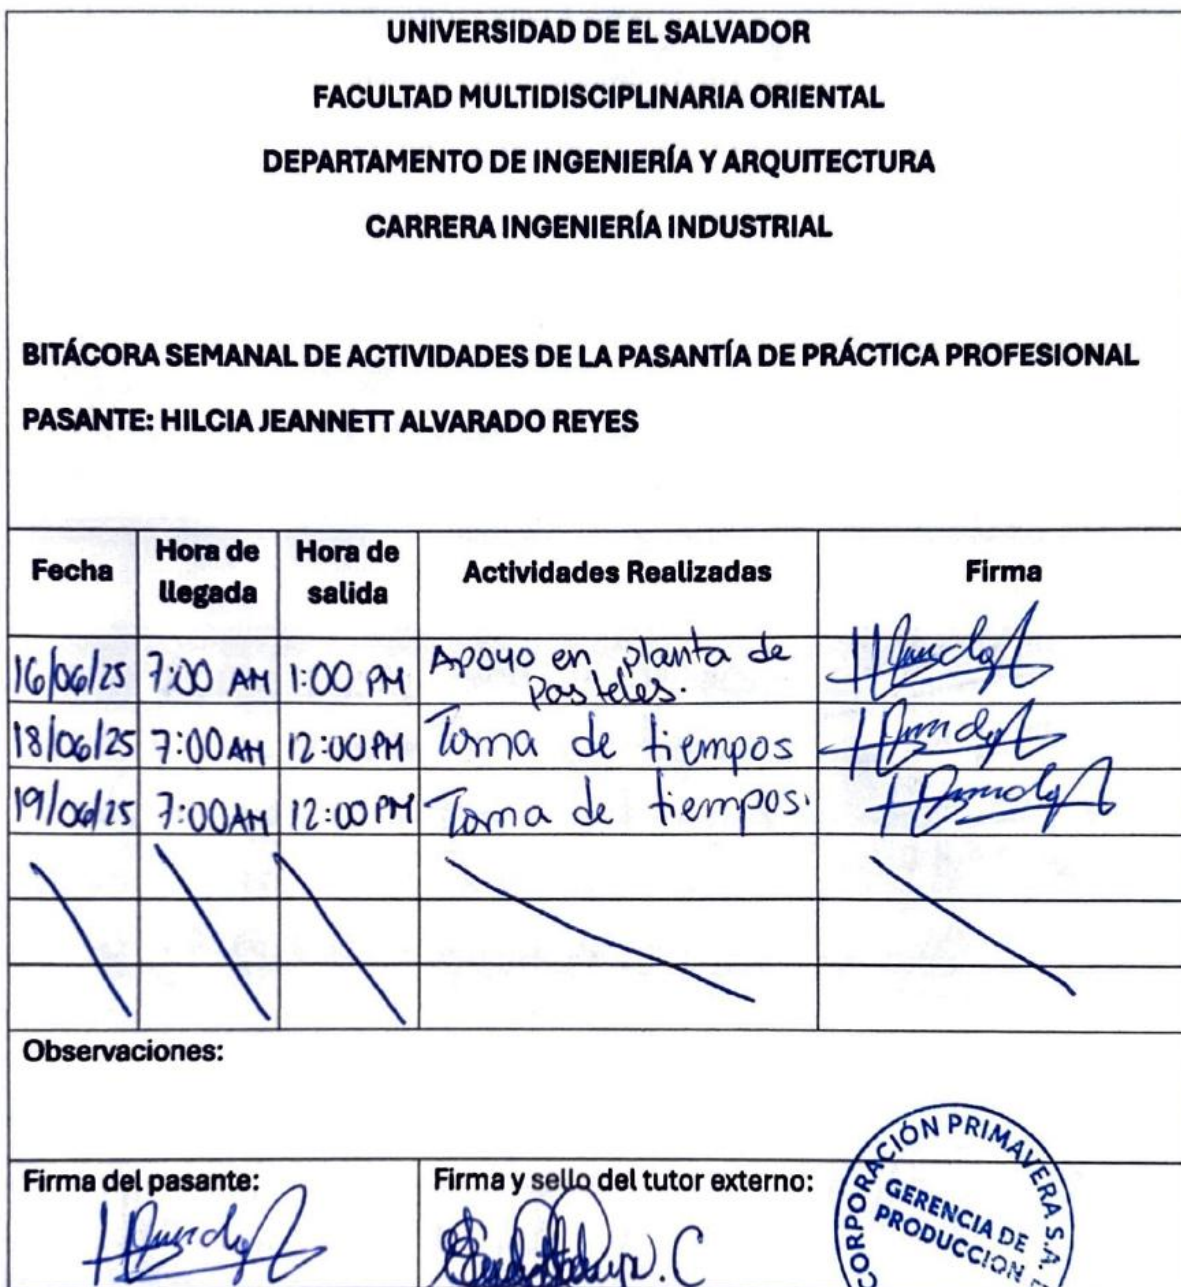 UNIVERSIDAD DE EL SALVADOR
FACULTAD MULTIDISCIPLINARIA ORIENTAL
DEPARTAMENTO DE INGENIERÍA Y ARQUITECTURA
CARRERA INGENIERÍA INDUSTRIAL
BITÁCORA SEMANAL DE ACTIVIDADES DE LA PASANTÍA DE PRÁCTICA PROFESIONAL
PASANTE: HILCIA JEANNETT ALVARADO REYES
Fecha Hora de llegada Hora de salida Actividades Realizadas Firma
16/06/25 7:00 AM 1:00 PM Apoyo en planta de
Pasteles.
18/06/25 7:00 AM 12:00 PM Toma de tiempos
19/06/25 7:00 AM 12:00 PM Toma de tiempos.
Observaciones:
Firma del pasante: Firma y sello del tutor externo:
CORPORACIÓN PRIMAVERA S.A.
GERENCIA DE
PRODUCCION